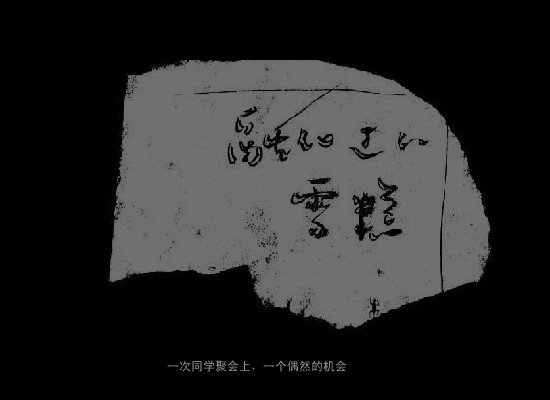 融化过的
雪糕
一次同学聚会上，一个偶然的机会